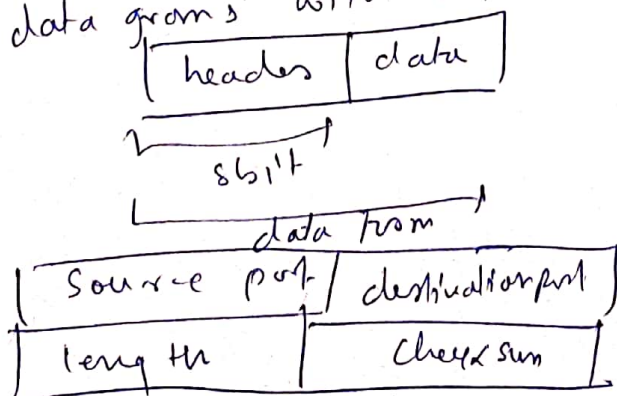 data grams with
header data
8bit
data from
Source port destination port
length checksum